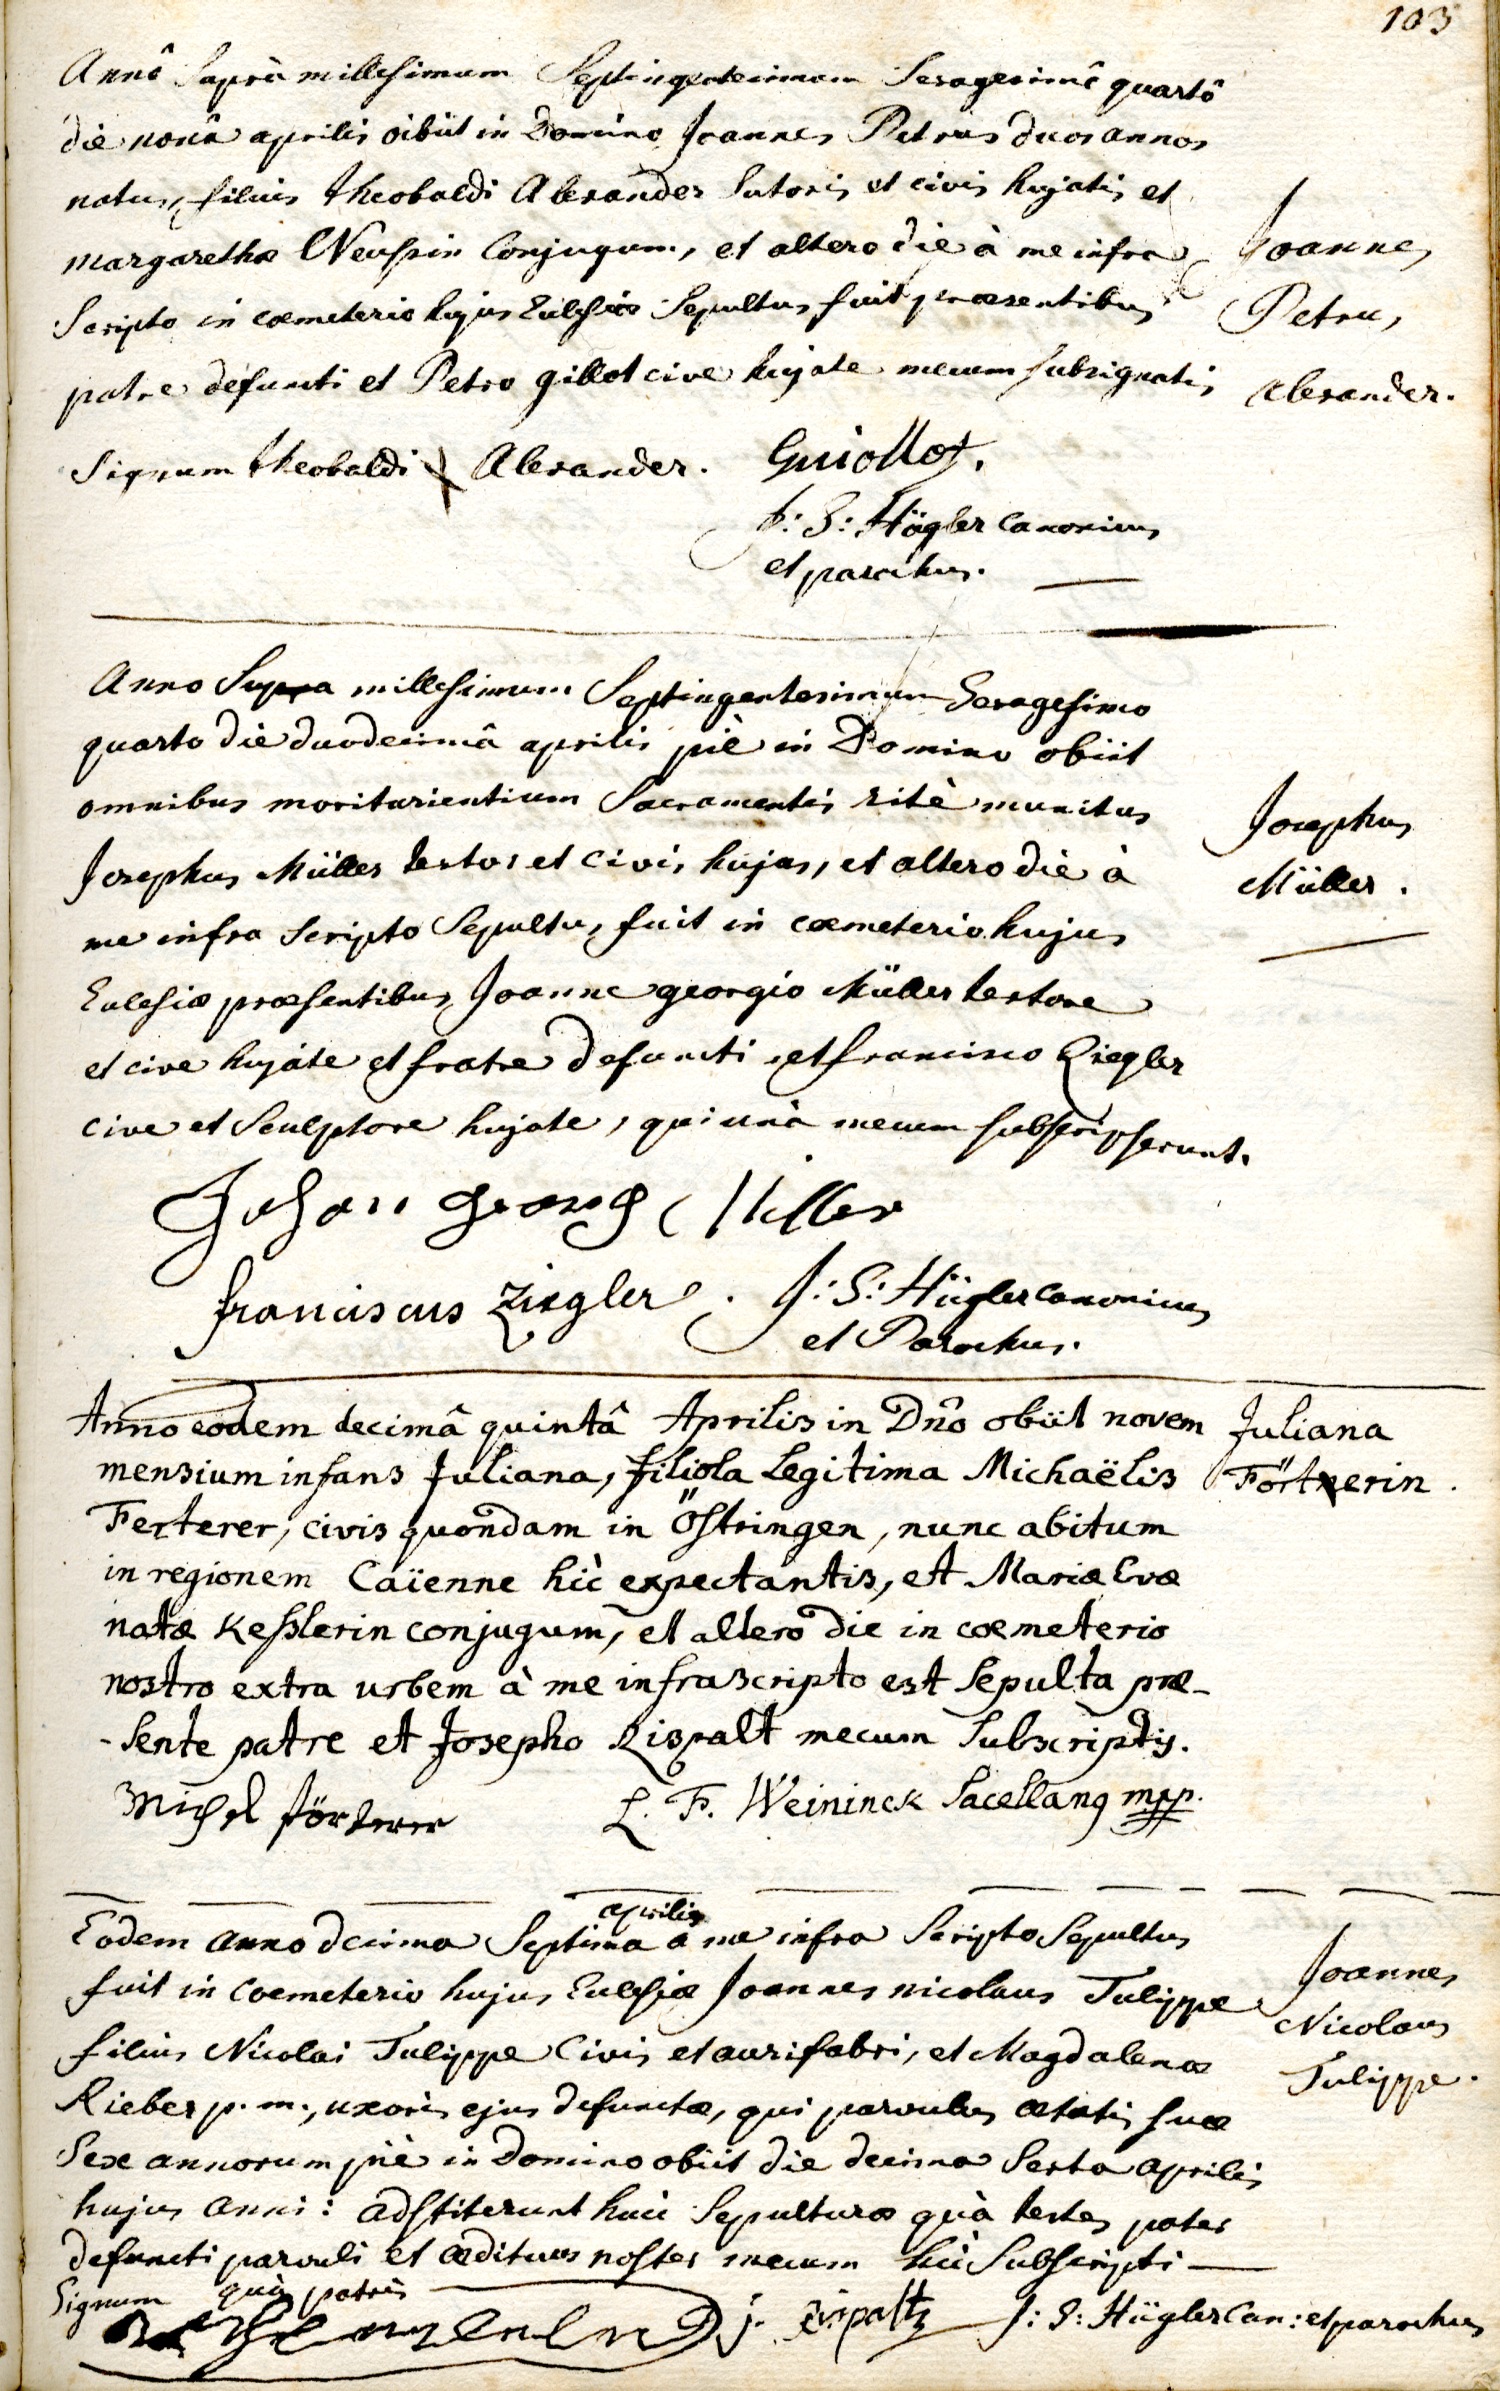 103
Annô suprà millesimum Septingentesimum Sexagesimô quartô
die nonâ aprilis obiit in Domino Joannes Petrus duos annos
natus, filius Theobaldi Alexander sutoris et civis hujatis et
margarethæ Neussin Conjugum, et altero die à me infra
Scripto in cœmeterio hujus Ecclesiæ Sepultus fuit præsentibus
patre defuncti et Petro gillot cive hujate mecum subsignatis
Joannes
Petrus
Alexander.
Signum theobaldi X Alexander. Guiollot.
J: S: Hügler Canonicus
et parochus.
Anno Supra millesimum Septingentesimum Sexagesimo
quarto die duodecimâ aprilis piè in Domino obiit
omnibus moriturientium Sacramentis ritè munitus
Josephus Müller textor et civis hujas, et altero die à
me infra scripto Sepultus fuit in cœmeterio hujus
Ecclesiæ præsentibus Joanne georgio Müller textore
et cive hujate et fratre defuncti et francisco Ziegler
cive et Sculptore hujate, qui unà mecum subscripserunt.
Josephus
Müller.
Johan Georg Miller
franciscus Ziegler. J: S: Hügler canonicus
et Parochus.
Anno eodem decimâ quintâ Aprilis in Dño obiit novem
mensium infans Juliana, filiola Legitima Michaëlis
Ferterer, civis quondam in Östringen, nunc abitum
in regionem Caïenne hic expectantis, et Mariæ Evæ
natæ Kesslerin conjugum, et altero die in cœmeterio
nostro extra urbem à me infrascripto est Sepulta præ-
-sente patre et Josepho Zispalt mecum Subscriptis.
Juliana
Förtnerin.
Michel Förterer L. F. Weininck Sacellang mpp.
aprilis
Eodem anno decima Septima a me infra Scripto Sepultus
fuit in Coemeterio hujus Ecclesiæ Joannes nicolaus Tulippe
filius Nicolai Tulippe Civis et aurifabri, et Magdalenæ
Rieber p. m., uxoris ejus defunctæ, qui parvulus ætatis suæ
Sex annorum piè in Domino obiit die decima Sexta aprilis
hujus anni: adstiterunt huic Sepulturæ quà testes pater
defuncti parvuli et ædituus noster mecum hic Subscripti
Joannes
Nicolaus
Tulippe.
Signum quà patris
j. zispaltz J: S: Hügler Can: et parochus